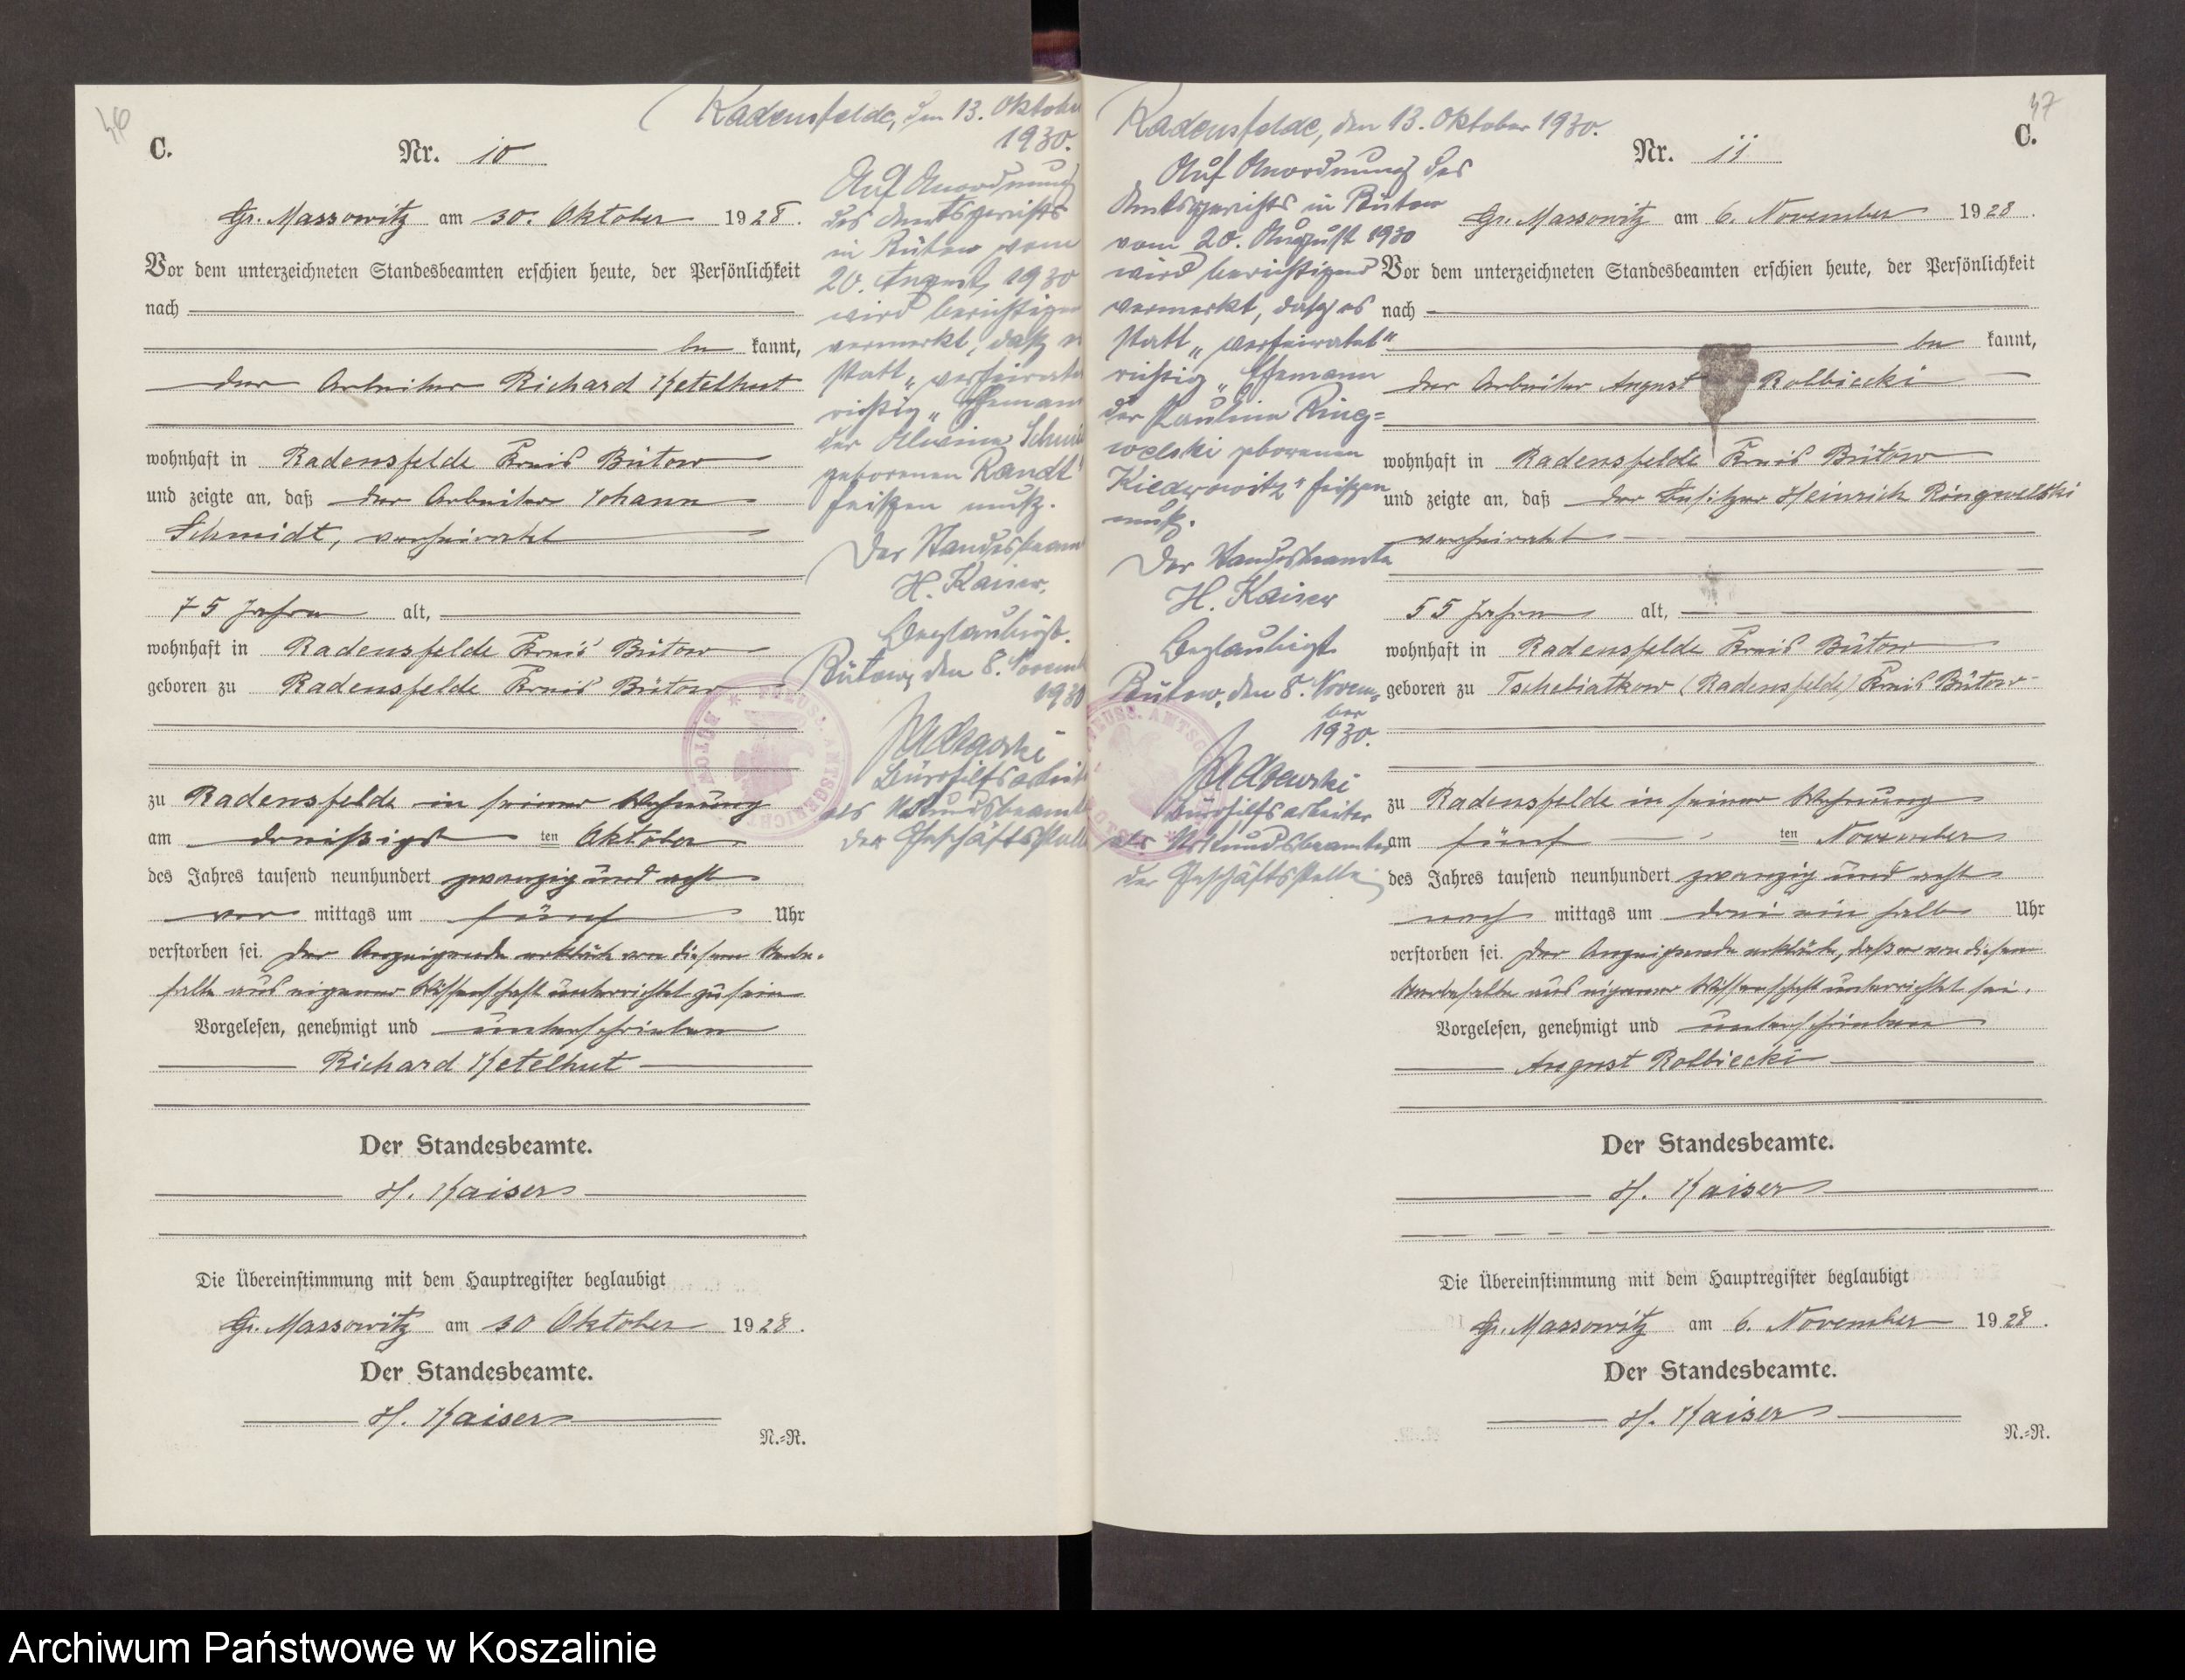 46
C.
Nr. 10
Gr. Massowitz am 30. Oktober 1928.
Vor dem unterzeichneten Standesbeamten erschien heute, der Persönlichkeit
nach
be kannt,
der Arbeiter Richard Ketelhut
wohnhaft in Radensfelde Kreis Bütow
und zeigte an, daß der Arbeiter Johann
Schmidt, verheiratet
75 Jahre alt,
wohnhaft in Radensfelde Kreis Bütow
geboren zu Radensfelde Kreis Bütow
zu Radensfelde in seiner Wohnung
am dreißigst ten Oktober
des Jahres tausend neunhundert zwanzig und acht
vor mittags um fünf Uhr
verstorben sei. Der Anzeigende erklärte von diesem Sterbe-
falle aus eigener Wissenschaft unterrichtet zu sein
Vorgelesen, genehmigt und unterschrieben
Richard Ketelhut
Der Standesbeamte.
H. Kaiser
Die Übereinstimmung mit dem Hauptregister beglaubigt
Gr. Massowitz am 30 Oktober 1928.
Der Standesbeamte.
H. Kaiser
N.=R.
Radensfelde, den 13. Oktober
1930.
Auf Anordnung
des Amtsgerichts
in Bütow vom
20. August 1930
wird berichtigend
vermerkt, daß es
statt „verheiratet
richtig „Ehemann
der Alwine Schmidt
geborenen Randt"
heißen muß.
Der Standesbeamte
H. Kaiser.
Beglaubigt.
Bütow, den 8. Novemb
1930
Bürohilfsarbeit
als Urkundsbeamte
der Geschäftsstelle
PREUSS. AMTSGERICHT * BÜTOW *
47
C.
Nr. 11
Radensfelde, den 13. Oktober 1930.
Auf Anordnung des
Amtsgerichts in Bütow
vom 20. August 1930
wird berichtigend
vermerkt, daß es
statt „verheiratet"
richtig „Ehemann
der Pauline Ring=
welski geborenen
Kiedrowitz" heißen
muß.
Der Standesbeamte
H. Kaiser
Beglaubigt
Bütow, den 8. Novem-
ber
1930.
Bürohilfsarbeiter
als Urkundsbeamter
der Geschäftsstelle
Gr. Massowitz am 6. November 1928.
Vor dem unterzeichneten Standesbeamten erschien heute, der Persönlichkeit
nach
be kannt,
der Arbeiter August Rolbiecki
wohnhaft in Radensfelde Kreis Bütow
und zeigte an, daß der Besitzer Heinrich Ringwelski
verheiratet
55 Jahre alt,
wohnhaft in Radensfelde Kreis Bütow
geboren zu Tschebiatkow (Radensfelde) Kreis Bütow
zu Radensfelde in seiner Wohnung
am fünf ten November
des Jahres tausend neunhundert zwanzig und acht
nach mittags um drei ein halb Uhr
verstorben sei. Der Anzeigende erklärte, daß er von diesem
Sterbefalle aus eigener Wissenschaft unterrichtet sei.
Vorgelesen, genehmigt und unterschrieben
August Rolbiecki
Der Standesbeamte.
H. Kaiser
Die Übereinstimmung mit dem Hauptregister beglaubigt
Gr. Massowitz am 6. November 1928.
Der Standesbeamte.
H. Kaiser
N.=R.
Archiwum Państwowe w Koszalinie